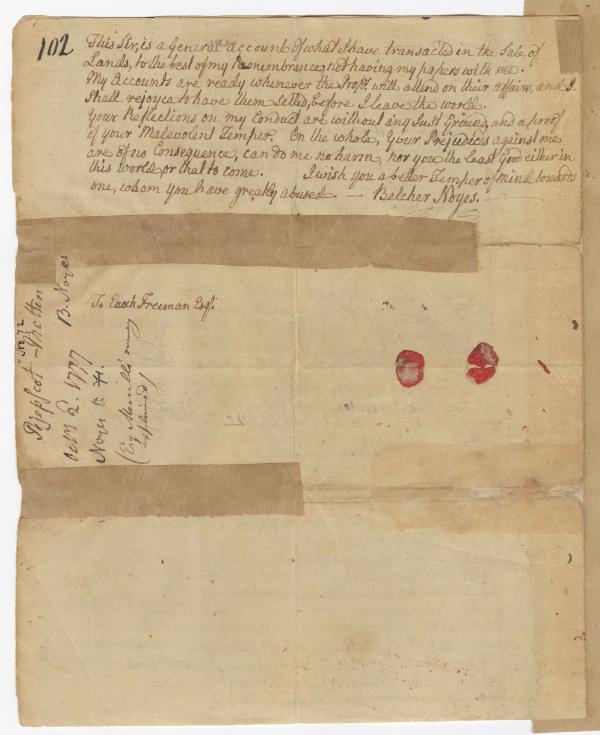 102
This Sir, is a General account of what I have transacted in the Sale of
Lands, to the best of my Remembrance, not having my papers with me.
My Accounts are ready whenever the Propts. will attend on their affairs, and I
Shall rejoyce to have them Setled, before I leave the world.
Your Reflections on my Conduct are without any Just Ground, and a proof
of your Malevolent Temper. On the whole, Your Prejudices against me
are of no Consequence, can do me no harm, nor you the Least Good either in
this world, or that to come. I wish you a better Temper of mind towards
one, whom you have greatly abused — Belcher Noyes.
To Enoch Freeman Esqr.
Pejepscot
No. 12
Octr. 2. 1777 B. Noyes
Noyes to